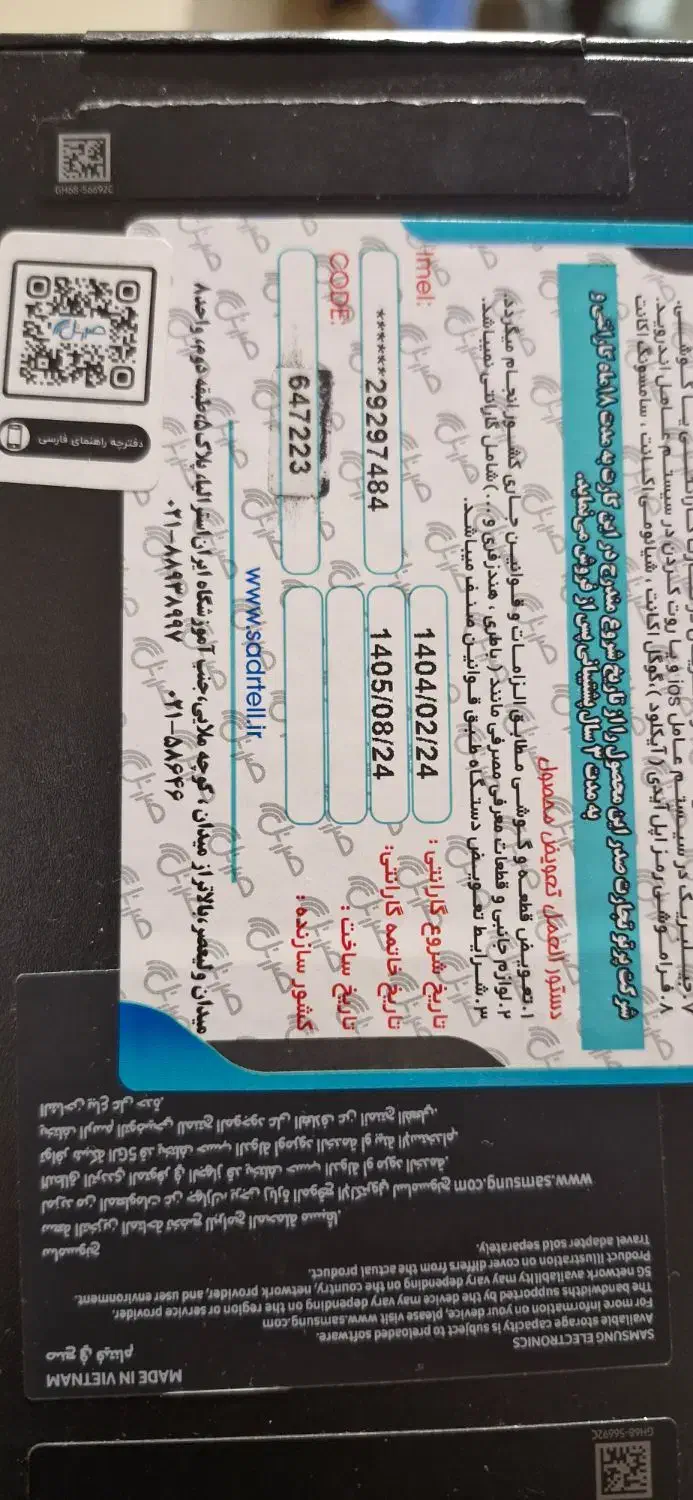 GH68-56692C
دفترچه راهنمای فارسی
شرکت پرتو تجارت صدر این محصول را از تاریخ شروع مندرج در این کارت به مدت ۱۸ماه گارانتی و
به مدت ۳ سال پشتیبانی پس از فروش می‌نماید.
دستور العمل تعویض محصول
۱.تعویض قطعه و گوشی مطابق الزامات و قوانین جاری کشور انجام میگردد.
۲.لوازم جانبی و قطعات مصرفی مانند ( باطری ، هندزفری و ...) شامل گارانتی نمیباشد.
۳.شرایط تعویض دستگاه طبق قوانین صنف میباشد.
Imei:
******29297484
CODE:
647223
تاریخ شروع گارانتی :
1404/02/24
تاریخ خاتمه گارانتی:
1405/08/24
تاریخ ساخت :
کشور سازنده :
www.sadrtell.ir
میدان ولیعصر،بالاتر از میدان ، کوچه ملایی،جنب آموزشگاه ایران استرالیا، پلاک ۵،طبقه دوم، واحد۸
۰۲۱-۸۸۹۳۸۹۹۷ ۰۲۱-۵۸۶۴۶
سامسونج
www.samsung.com
SAMSUNG ELECTRONICS
Available storage capacity is subject to preloaded software.
For more information on your device, please visit www.samsung.com
The bandwidths supported by the device may vary depending on the region or service provider.
5G network availability may vary depending on the country, network provider, and user environment.
Product illustration on cover differs from the actual product.
Travel adapter sold separately.
MADE IN VIETNAM
صنع في فيتنام
GH68-56692C